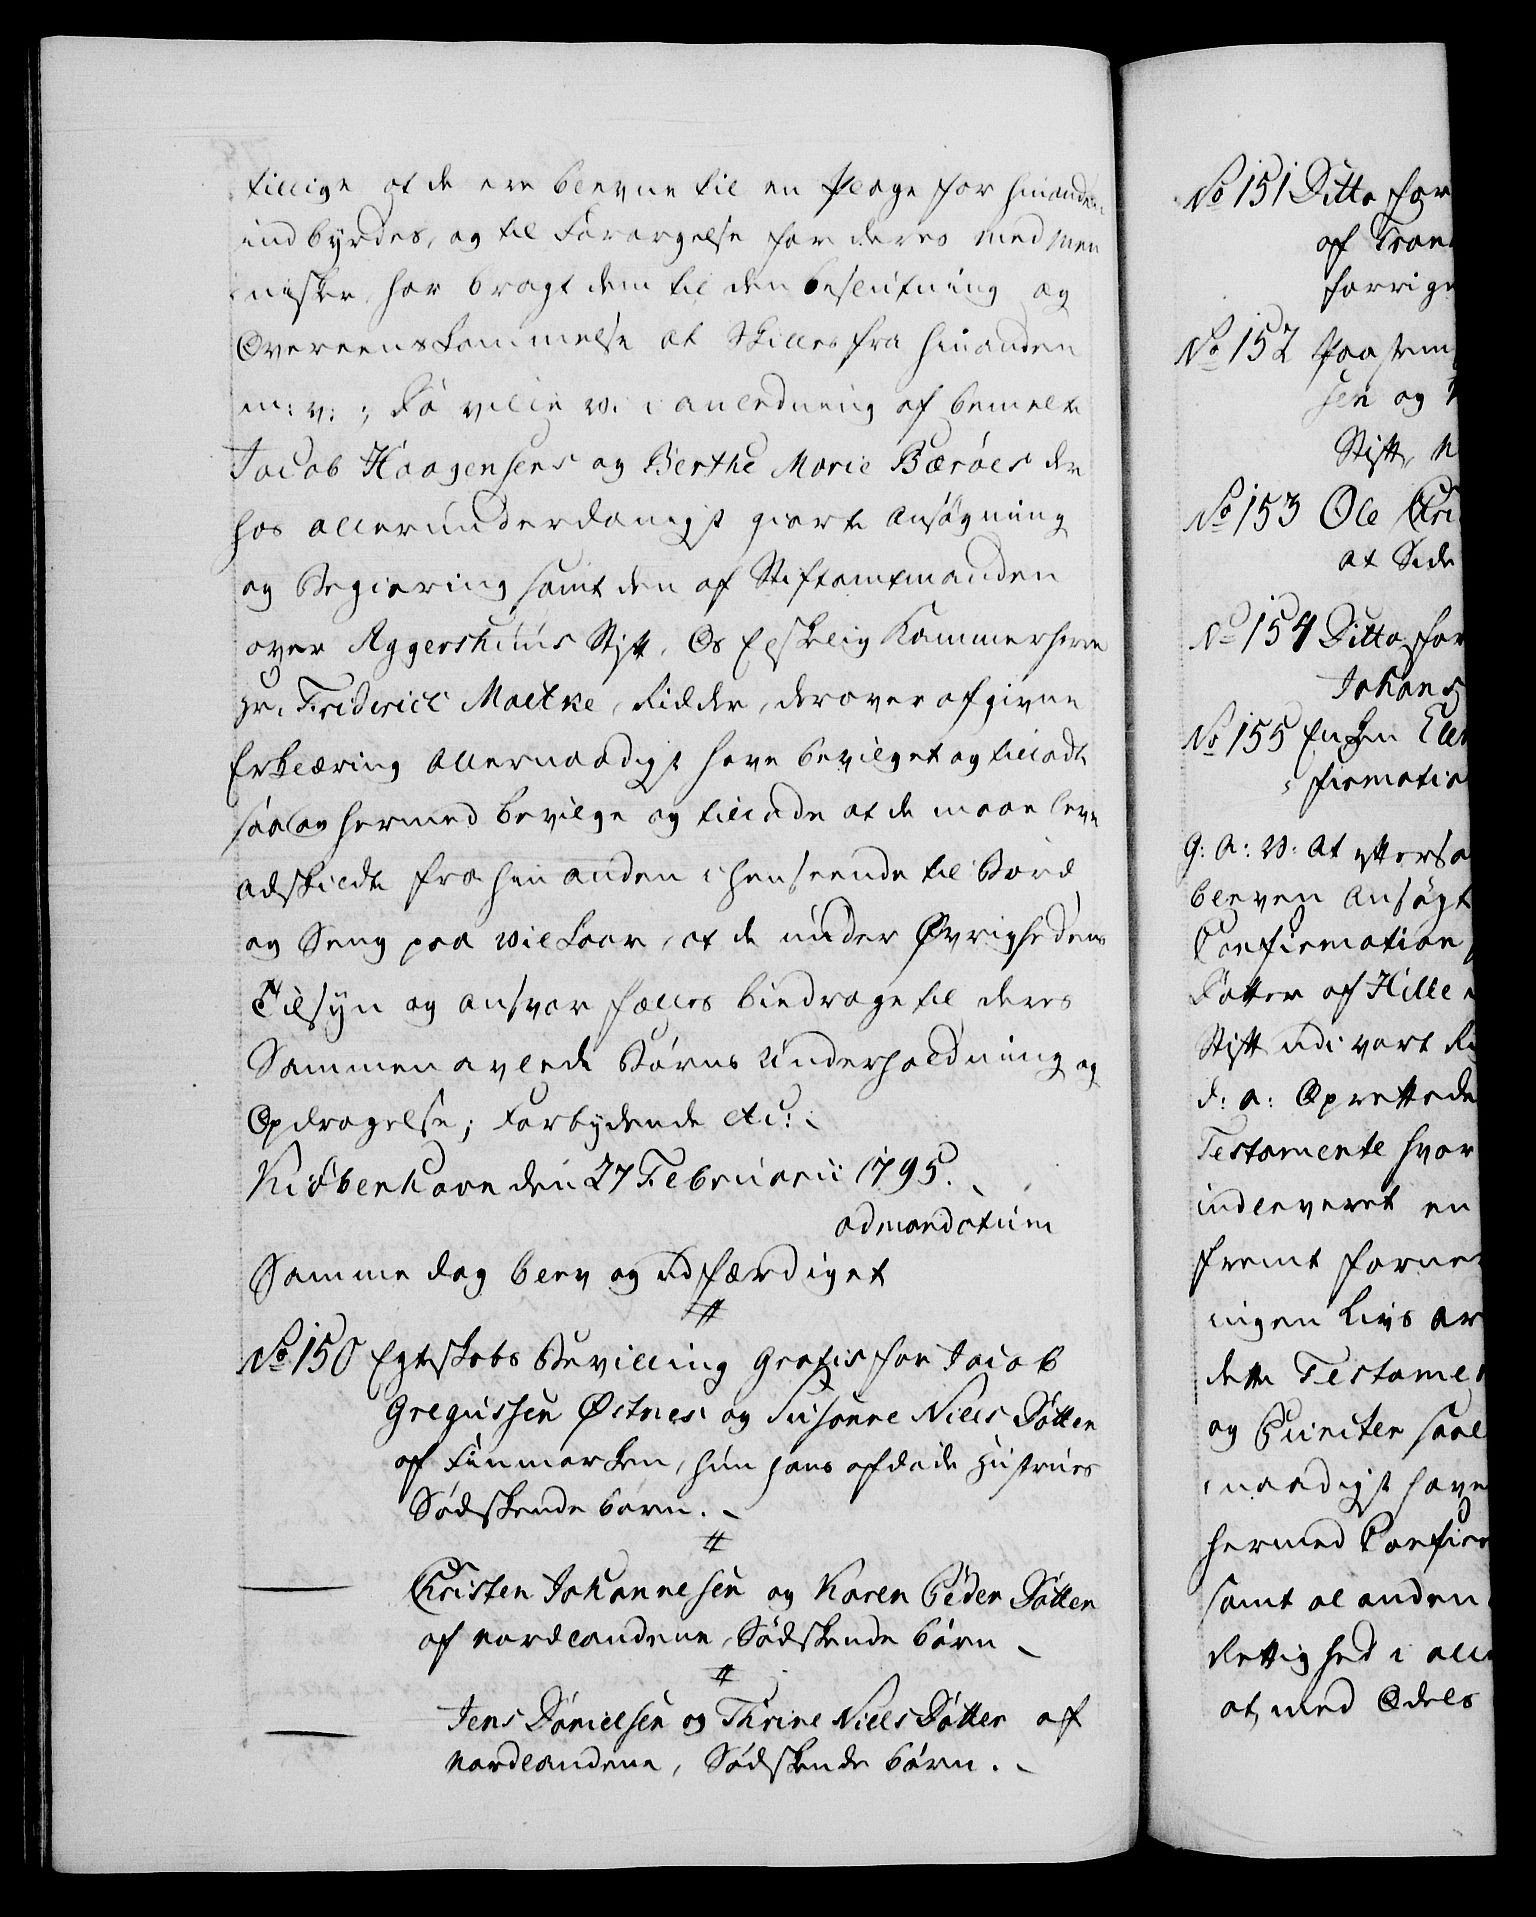 tillige at de ere blevne til en Plage for hinanden
indbyrdes, og til Forargelse for deres med Men
nisker, har bragt dem til den beslutning og
Overeenskommelse at skilles fra hinanden
m: v: ; Da ville Wi i anledning af bemelte
Jacob Haagensens og Berthe Marie Bærøes der
hos allerunderdanigst giorte Ansøgning
og Begiering samt den af Stiftamtmanden
over Aggershuus Stift, Os Elskelig Kammerherre
Hr. Friderich Moltke, Ridder, derover afgivne
Erklæring Allernaadigst have bevilget og tilladt
saa og hermed bevilge og tillade at de maae leve
adskildte fra hinanden i henseende til Bord
og Seng paa Vilkaar, at de under Øvrighedens
Tilsyn og ansvar fælles bidrage til deres
Sammenavlede Børns Underholdning og
Opdragelse; Forbydende etc:
Kiøbenhavn den 27 Februarii 1795.
ad mandatum
Samme dag blev og udfærdiget
No 150 Egteskabs Bevilling Gratis for Jacob
Gregussen Østnes og Susanne Niels Datter
af Finmarken, hun hans afdøde Hustrues
Sødskendebarn.
Christen Johannesen og Karen Peder Datter
af Nordlandene, Sødskende børn
Jens Danielsen og Thrine Niels Datter af
Nordlandene, Sødskende børn.
No 151 Ditto for
af Tron
forrige
No 152
sen og
Stift, N
No 153 Ole Chri
at Side
No 154 Ditto for
Johans
No 155 En Con
firmatio
G: A: V: At
bleven Ansøgt
Confirmation
Datter af Hille
Stift udi vort Ri
d: a: Oprettede
Testamente hvor
indleveret en
fremt forne
ingen Livs ar
dette Testame
og Puncter saal
naadigst have
hermed Confir
samt al anden
Rettighed i all
at med Odels